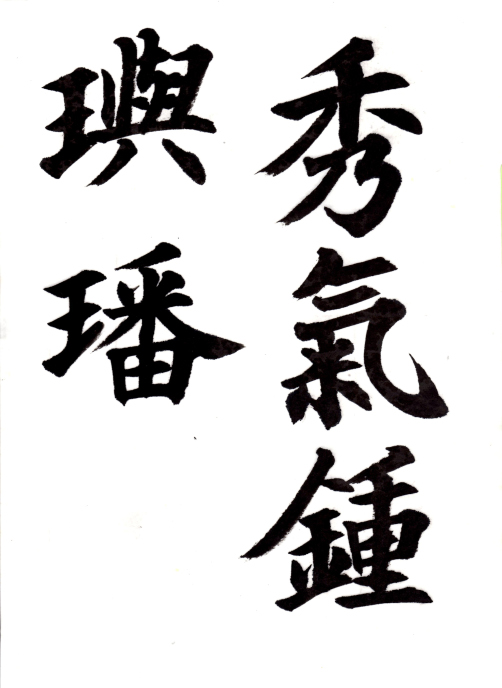 秀氣鍾
璵璠